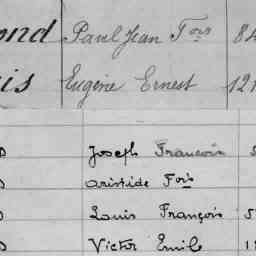 ond Paul Jean Fois 84
is Eugène Ernest 121
D Joseph Francois 5
D Aristide Fois
D Louis François 5
D Victor Emile 18